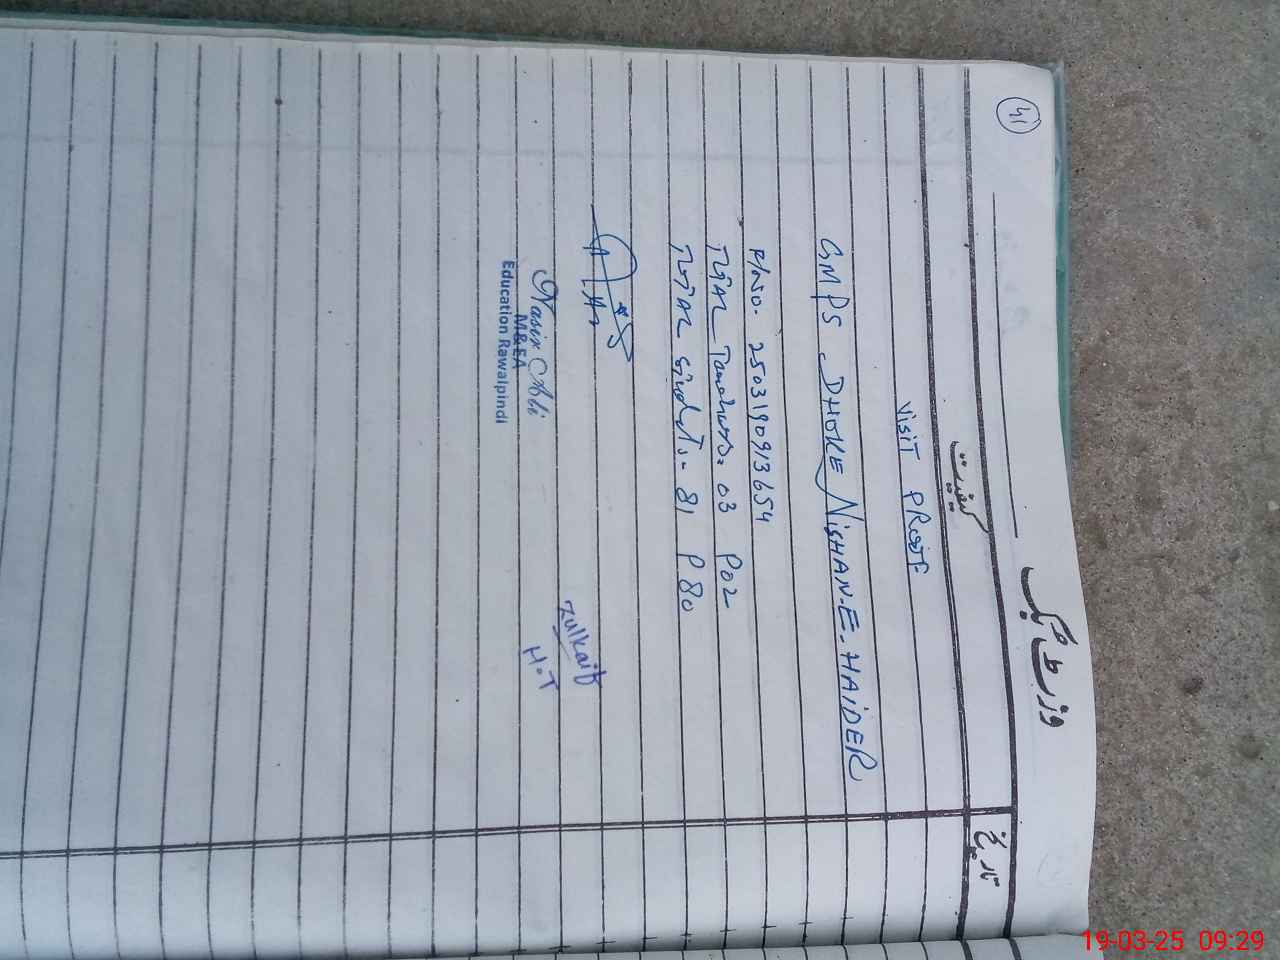 41
وزٹ بک
کیفیت
تاریخ
VISIT PROOF
GMPS DHOKE NISHAN-E-HAIDER
P/NO. 2503190913654
Total Teachers. 03 P02
Total Students. 81 P80
Zulkaif
H.T
Nasir Ali
M&EA
Education Rawalpindi
19-03-25 09:29